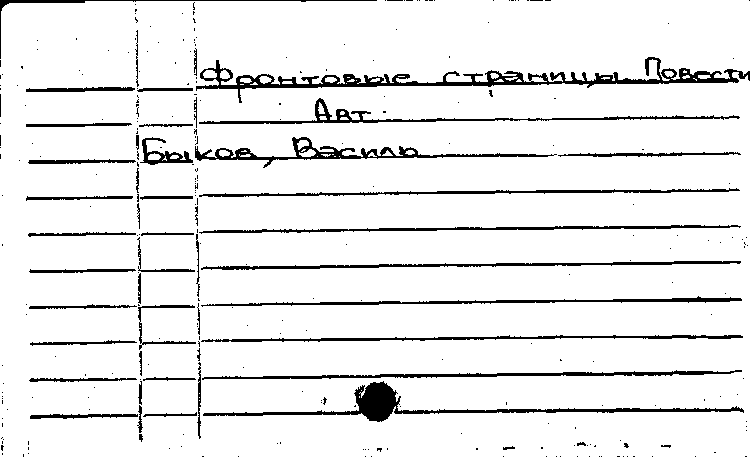 Фронтовые страницы. Повести
Авт.
Быков, Василь